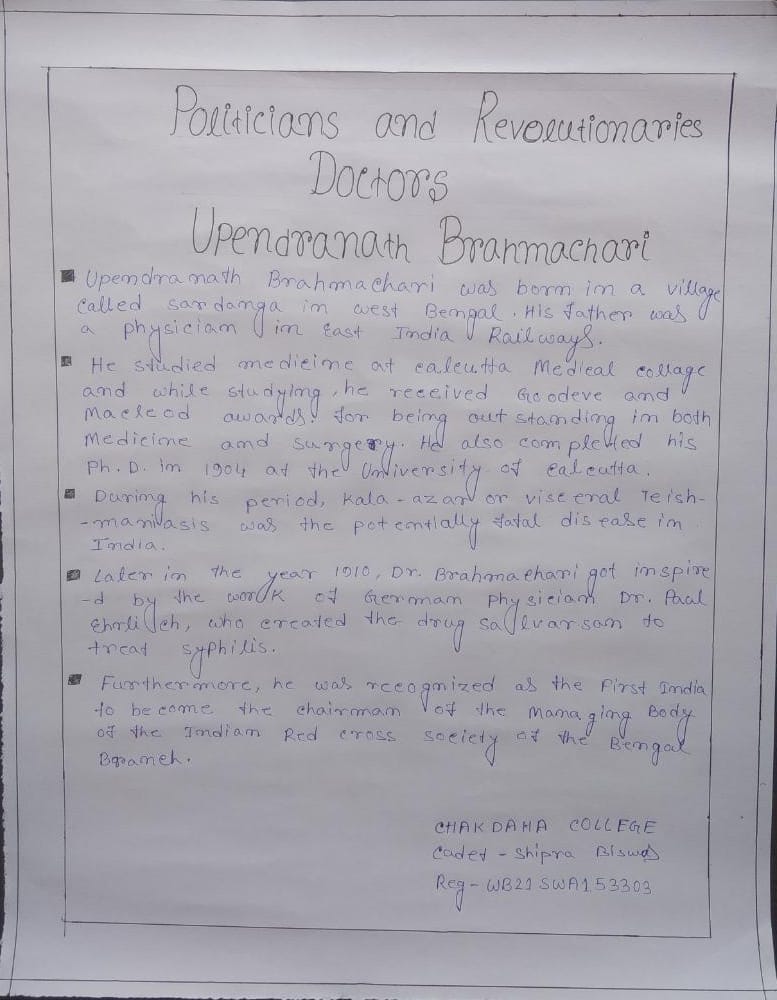 Politicians and Revolutionaries
Doctors
Upendranath Brahmachari
Upendranath Brahmachari was born in a village
called sardanga in west Bengal. His father was
a physician in East India Railways.
He studied medicine at calcutta Medical collage
and while studying, he received Goodeve and
Macleod awards. for being outstanding in both
Medicine and surgery. He also completed his
Ph.D. in 1904 at the University of calcutta.
During his period, Kala-azar or visceral leish-
-maniasis was the potentially fatal disease in
India.
Later in the year 1910, Dr. Brahmachari got inspire
-d by the work of German physician Dr. Paul
Ehrlich, who created the drug salvarsan to
treat syphilis.
Furthermore, he was recognized as the First India
to become the chairman of the Managing Body
of the Indian Red cross society of the Bengal
Branch.
CHAKDAHA COLLEGE
Cadet - Shipra Biswas
Reg - WB21SWA153303